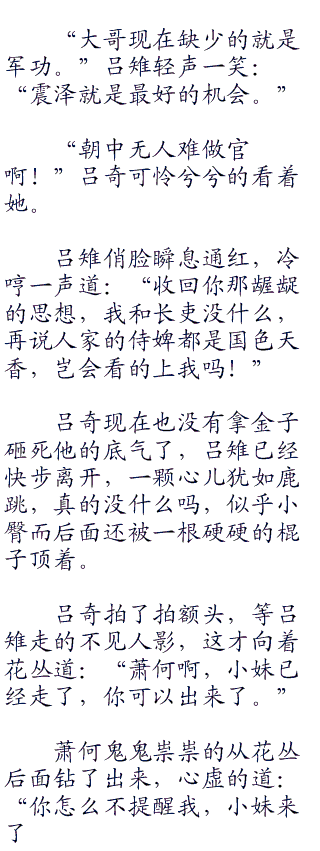 “大哥现在缺少的就是
军功。”吕雉轻声一笑：
“震泽就是最好的机会。”
“朝中无人难做官
啊！”吕奇可怜兮兮的看着
她。
吕雉俏脸瞬息通红，冷
哼一声道：“收回你那龌龊
的思想，我和长吏没什么，
再说人家的侍婢都是国色天
香，岂会看的上我吗！”
吕奇现在也没有拿金子
砸死他的底气了，吕雉已经
快步离开，一颗心儿犹如鹿
跳，真的没什么吗，似乎小
臀而后面还被一根硬硬的棍
子顶着。
吕奇拍了拍额头，等吕
雉走的不见人影，这才向着
花丛道：“萧何啊，小妹已
经走了，你可以出来了。”
萧何鬼鬼祟祟的从花丛
后面钻了出来，心虚的道：
“你怎么不提醒我，小妹来
了